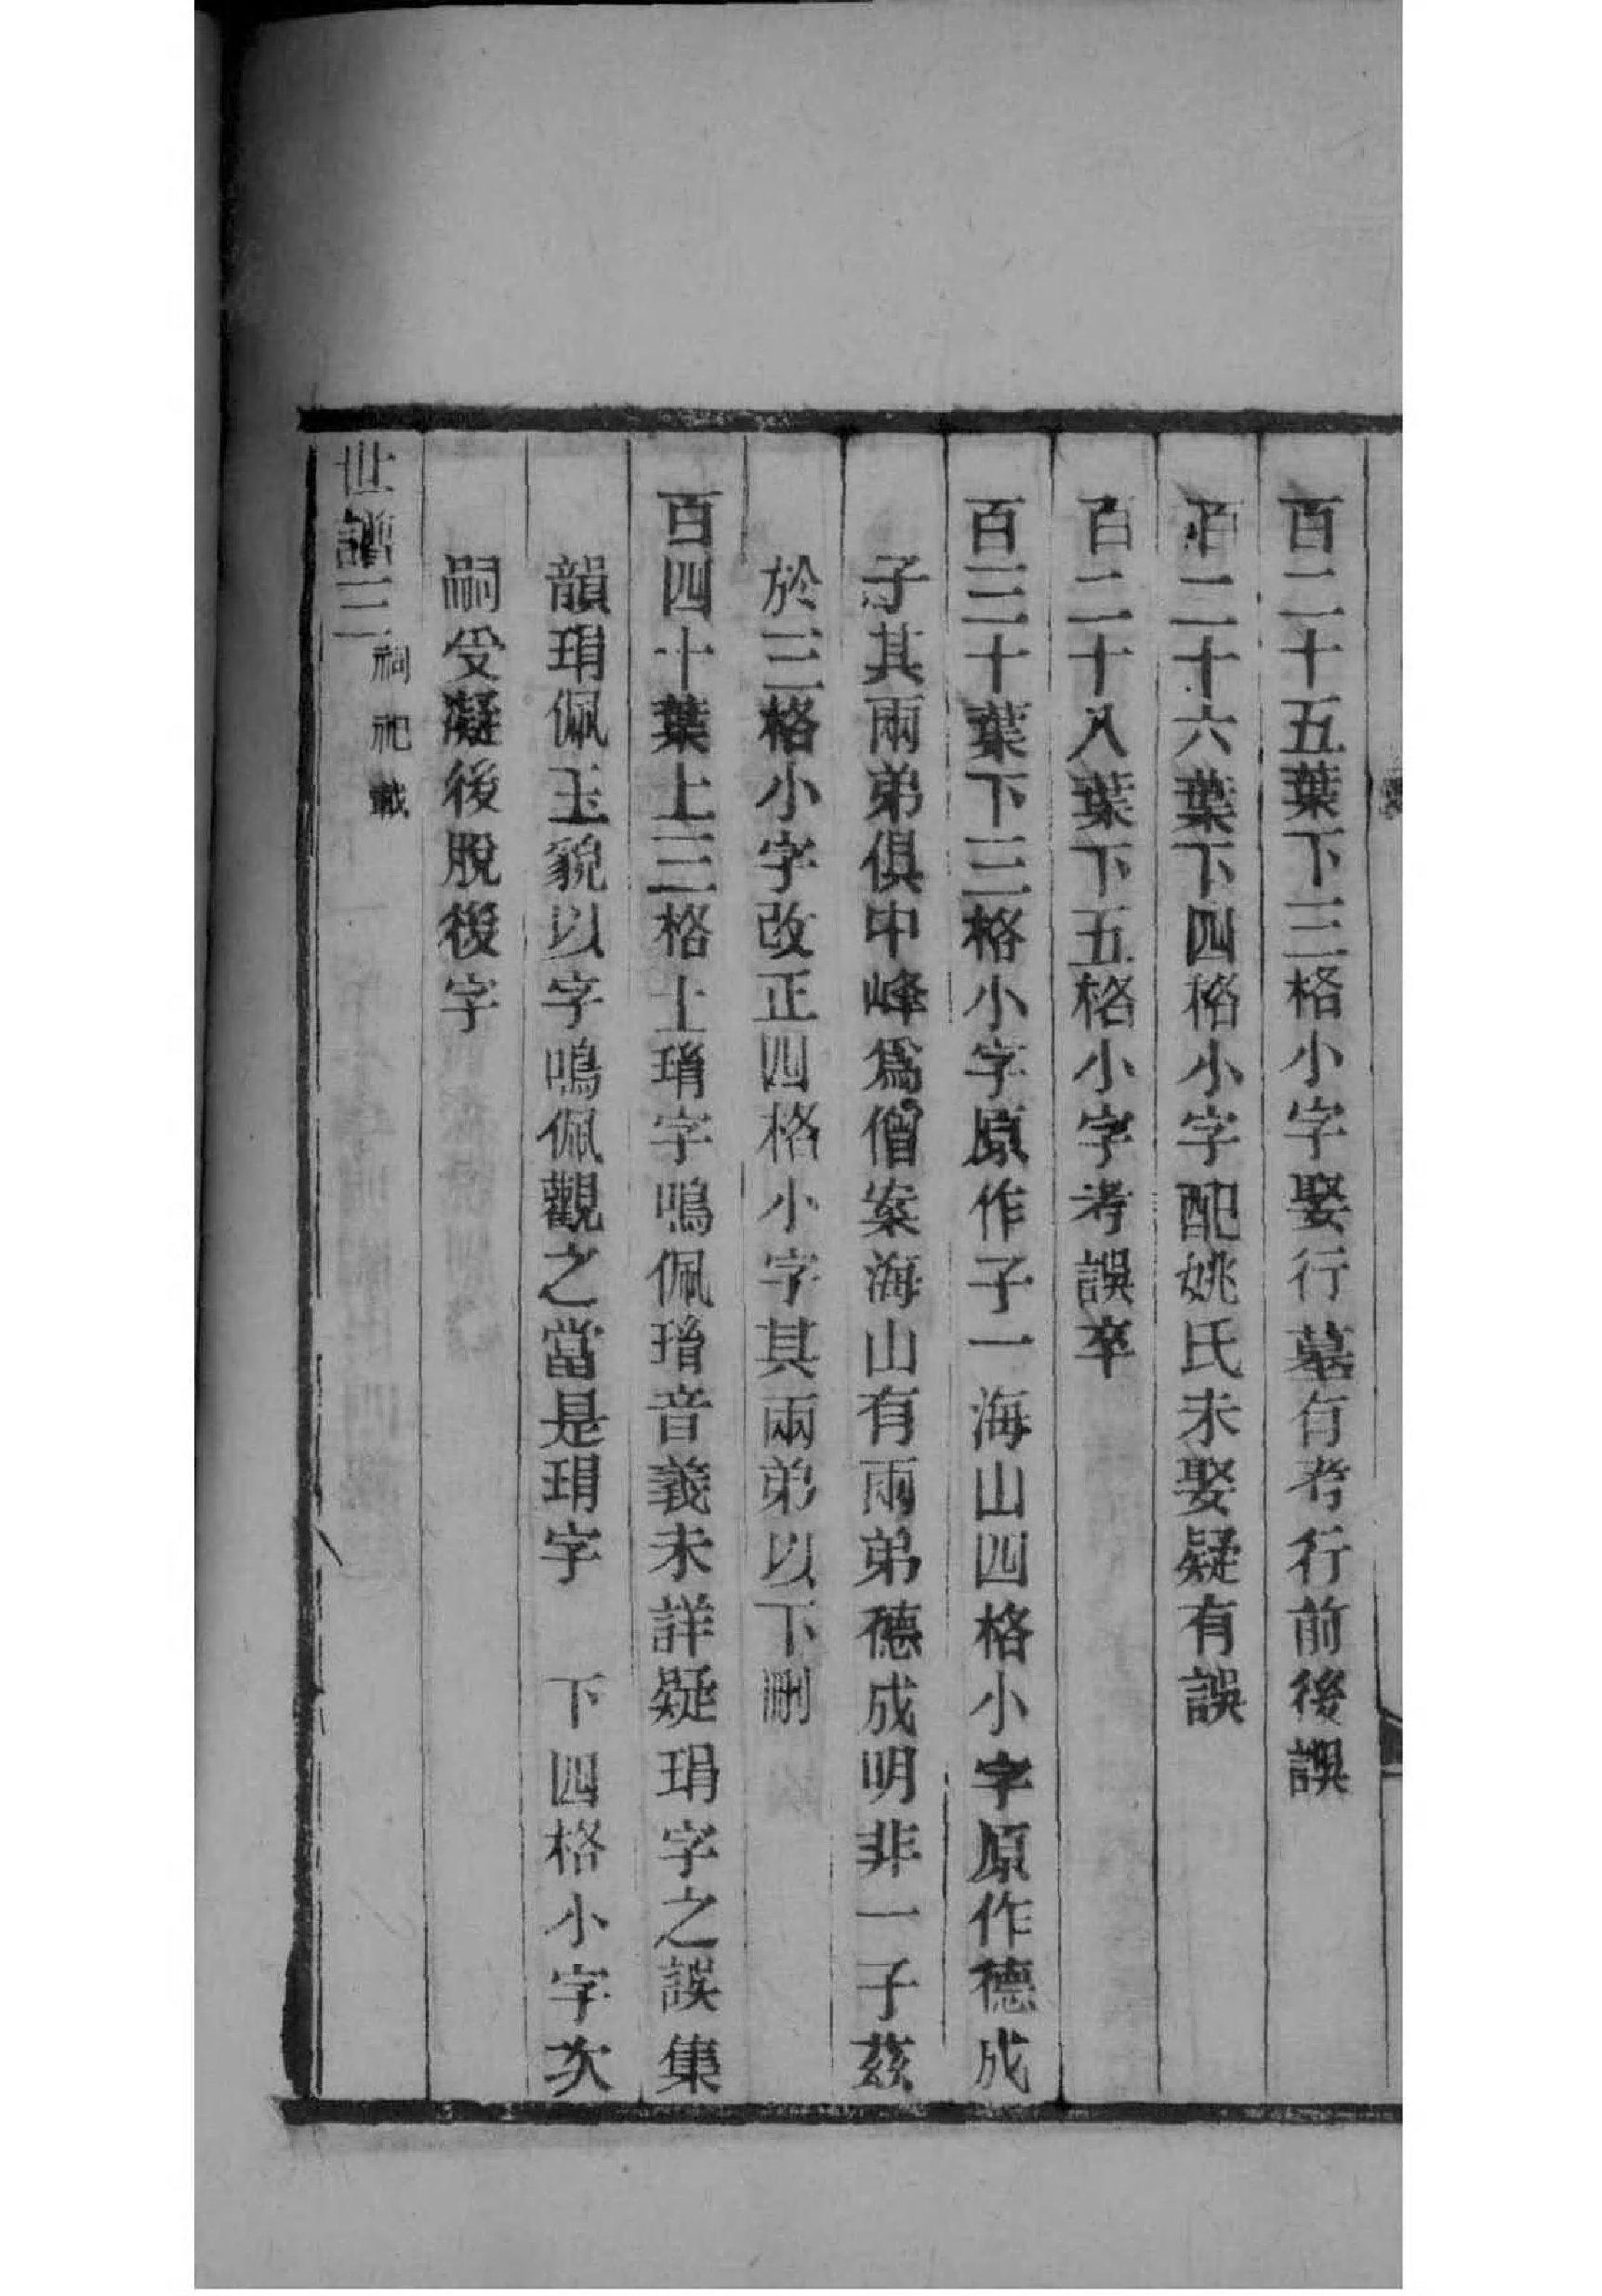 百二十五葉下三格小字娶行墓有考行前後誤
百二十六葉下四格小字配姚氏未娶疑有誤
百二十八葉下五格小字考誤卒
百三十葉下三格小字原作子一海山四格小字原作德成
子其兩弟俱中峰爲僧案海山有兩弟德成明非一子茲
於三格小字改正四格小字其兩弟以下刪
百四十葉上三格士琄字鳴佩琄音義未詳疑琄字之誤集
韻琄佩玉貌以字鳴佩觀之當是琄字　下四格小字次
嗣受凝後脫後字
世譜三 祠祀載